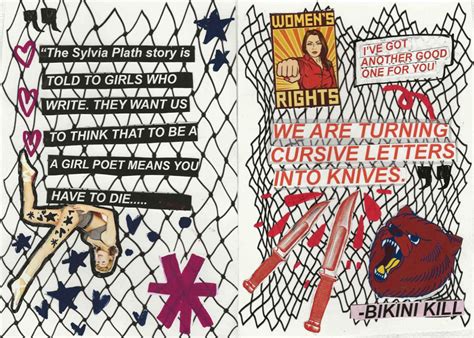 "The Sylvia Plath story is
TOLD TO GIRLS WHO
WRITE. THEY WANT US
TO THINK THAT TO BE A
A GIRL POET MEANS YOU
HAVE TO DIE.....
WOMEN'S
RIGHTS
I'VE GOT
ANOTHER GOOD
ONE FOR YOU
WE ARE TURNING
CURSIVE LETTERS
INTO KNIVES.
"
-BIKINI KILL